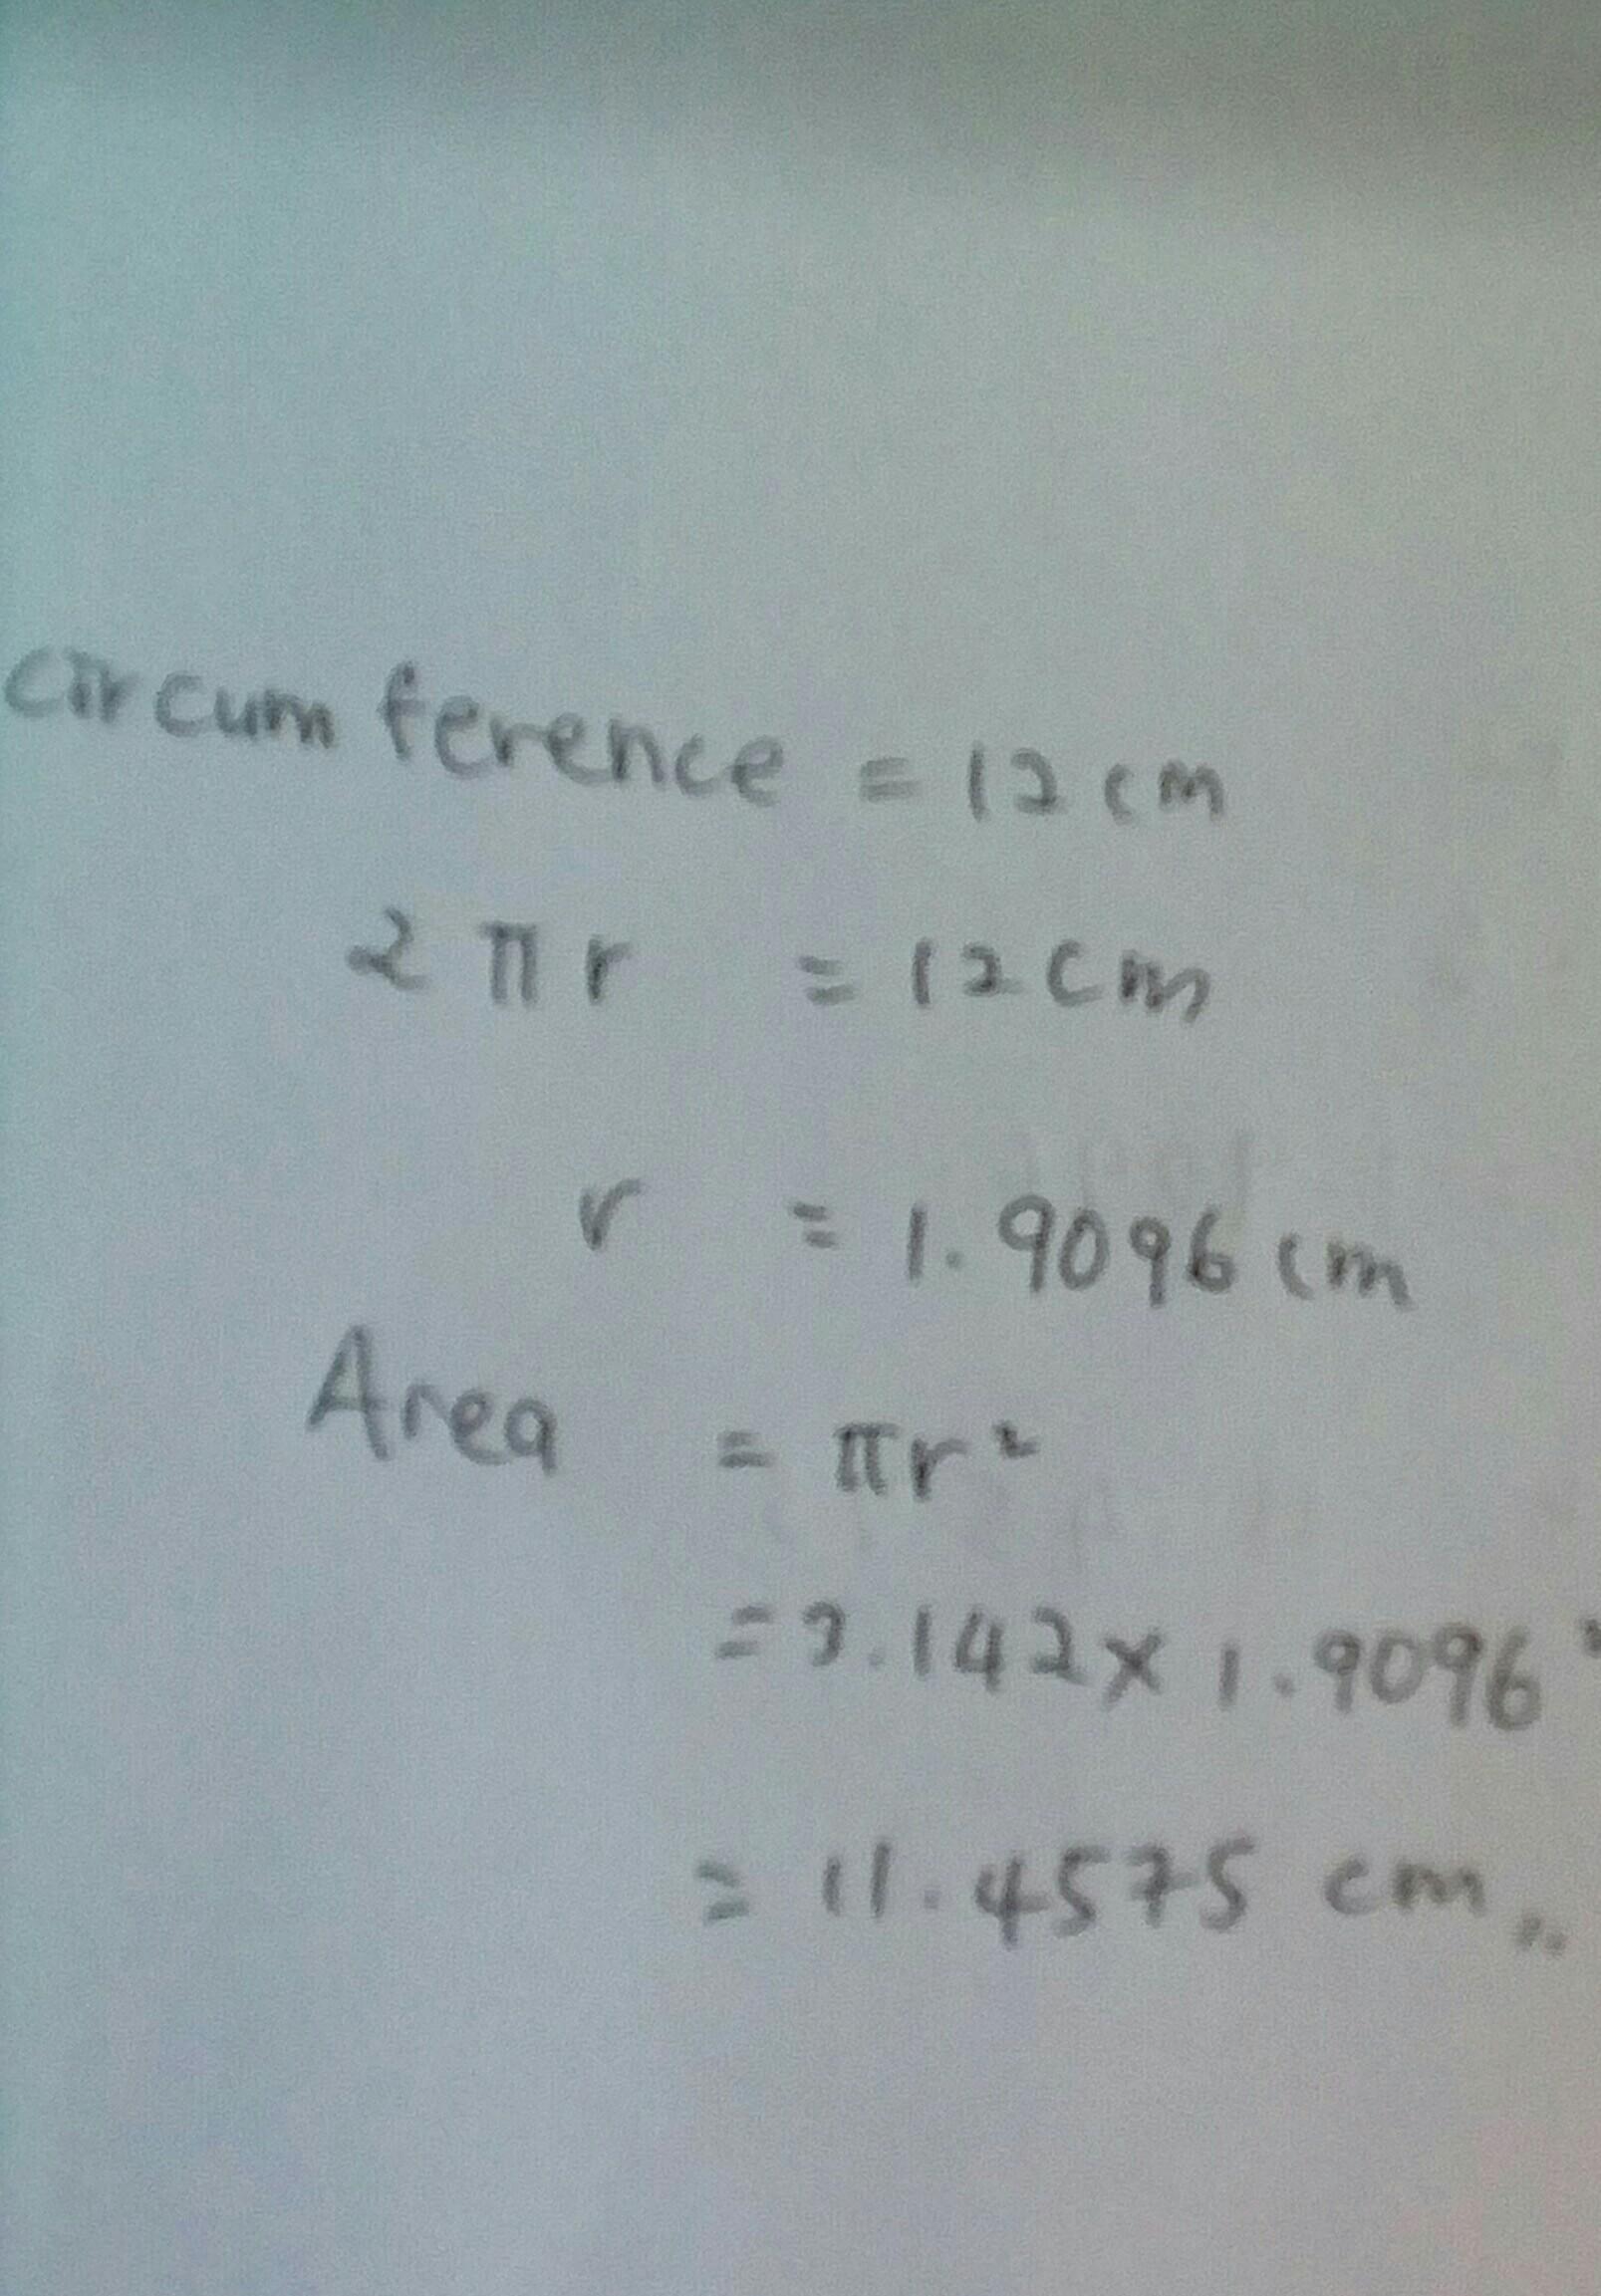 circumference = 12 cm
2 π r = 12 cm
r = 1.9096 cm
Area = πr²
= 3.142 x 1.9096²
= 11.4575 cm